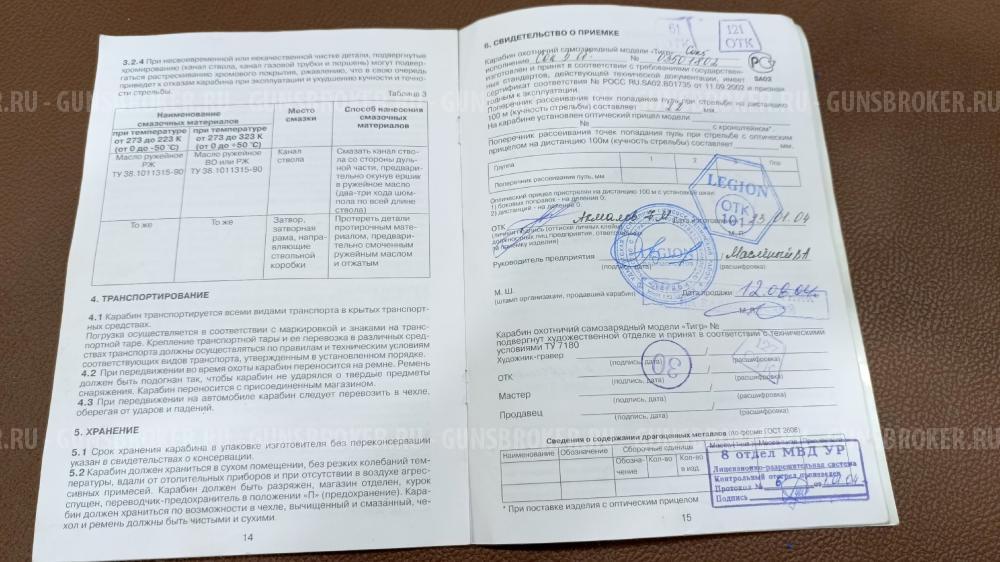 3.2.4 При несвоевременной или некачественной чистке детали, подвергнутые
хромированию (канал ствола, канал газовой трубки и поршень) могут подвер-
гаться растрескиванию хромового покрытия, ржавлению, что в свою очередь
приведет к отказам карабина при эксплуатации и ухудшению кучности и точно-
сти стрельбы.
Таблица 3
Наименование смазочных материалов
Место смазки
Способ нанесения смазочных материалов
при температуре от 273 до 223 К (от 0 до -50 °С)
при температуре от 273 до 323 К (от 0 до +50 °С)
Масло ружейное
РЖ
ТУ 38.1011315-90
Масло ружейное
ВО или РЖ
ТУ 38.1011315-90
Канал
ствола
Смазать канал ство-
ла со стороны дуль-
ной части, предвари-
тельно окунув ершик
в ружейное масло
(два-три хода шом-
пола по всей длине
ствола)
То же
То же
Затвор,
затворная
рама, нап-
равляющие
ствольной
коробки
Протереть детали
протирочным мате-
риалом, предвари-
тельно смоченным
ружейным маслом
и отжатым
4. ТРАНСПОРТИРОВАНИЕ
4.1 Карабин транспортируется всеми видами транспорта в крытых транспорт-
ных средствах.
Погрузка осуществляется в соответствии с маркировкой и знаками на транс-
портной таре. Крепление транспортной тары и ее перевозка в различных сред-
ствах транспорта должны осуществляться по правилам и техническим условиям
соответствующих видов транспорта, утвержденным в установленном порядке.
4.2 При передвижении во время охоты карабин переносится на ремне. Ремень
должен быть подогнан так, чтобы карабин не ударялся о твердые предметы
снаряжения. Карабин переносится с присоединенным магазином.
4.3 При передвижении на автомобиле карабин следует перевозить в чехле,
оберегая от ударов и падений.
5. ХРАНЕНИЕ
5.1 Срок хранения карабина в упаковке изготовителя без переконсервации
указан в свидетельстве о консервации.
5.2 Карабин должен храниться в сухом помещении, без резких колебаний тем-
пературы, вдали от отопительных приборов и при отсутствии в воздухе агрес-
сивных примесей. Карабин должен быть разряжен, магазин отделен, курок
спущен, переводчик-предохранитель в положении «П» (предохранение). Кара-
бин должен храниться по возможности в чехле, вычищенный и смазанный, че-
хол и ремень должны быть чистыми и сухими.
14
61
ОТК
121
ОТК
6. СВИДЕТЕЛЬСТВО О ПРИЕМКЕ
Карабин охотничий самозарядный модели «Тигр»
исполнение № 03507802
изготовлен и принят в соответствии с требованиями государствен-
ных стандартов, действующей технической документации, имеет
сертификат соответствия № РОСС RU.SA02.B01735 от 11.09.2002 и признан
годным к эксплуатации.
SA02
Поперечник рассеивания точек попадания пуль при стрельбе на дистанцию
100 м (кучность стрельбы) составляет мм.
На карабине установлен оптический прицел модели
№ с кронштейном*.
Поперечник рассеивания точек попадания пуль при стрельбе с оптическим
прицелом на дистанцию 100м (кучность стрельбы) составляет мм.
Группа 1 2 3
Поперечник рассеивания пуль, мм
Оптический прицел пристрелян на дистанцию 100 м с установкой шкал:
1) боковых поправок - на деление 0;
2) дистанций - на деление
LEGION
ОТК
101
ОТК Дата изготовления 23.01.04
М. П.
Руководитель предприятия
(подпись) (расшифровка)
М. Ш. Дата продажи
(штамп организации, продавшей карабин)
Карабин охотничий самозарядный модели «Тигр» №
подвергнут художественной отделке и принят в соответствии с техническими
условиями ТУ 7180
Художник-гравер / /
(подпись, дата) (расшифровка)
30
ОТК / /
(подпись, дата) (расшифровка)
Мастер / /
(подпись, дата) (расшифровка)
Продавец / /
(подпись, дата) (расшифровка)
Сведения о содержании драгоценных металлов
Наименование Обозначение Сборочные единицы
Обозна-
чение
Кол-во
Кол-во
в изд.
8 отдел МВД УР
Лицензионно-разрешительная система
Контрольный отстрел произведен
Протокол № 6 от
Подпись
* При поставке изделия с оптическим прицелом
15
GUNSBROKER.RU - GUNSBROKER.RU - GUNSBROKER.RU